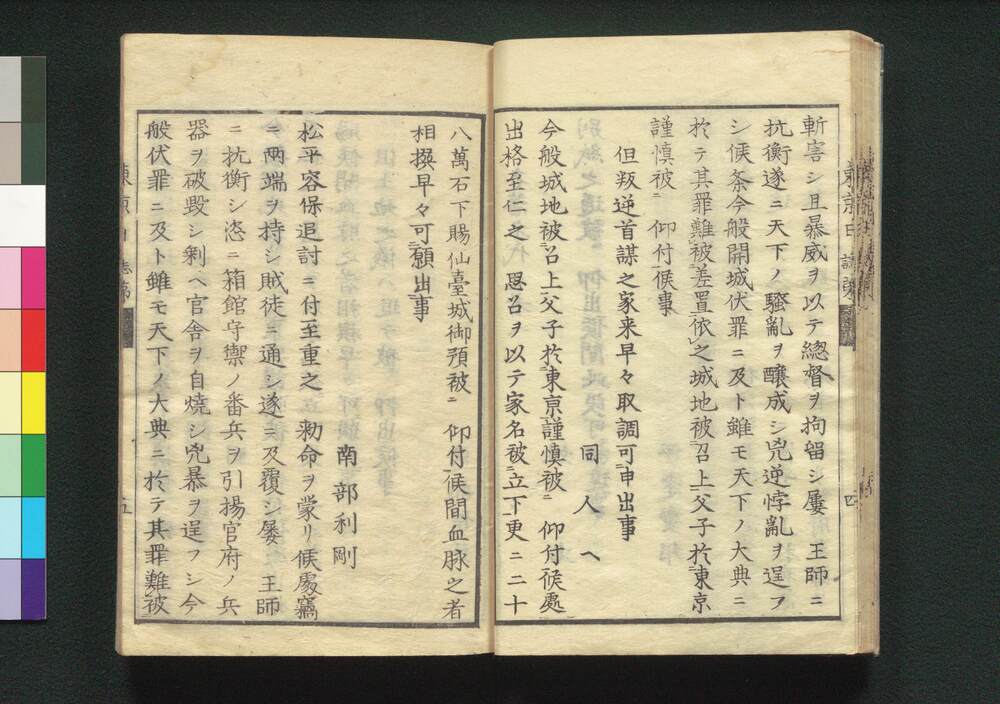 斬害シ且暴威ヲ以テ總督ヲ拘留シ屢　王師ニ
抗衡遂ニ天下ノ騷亂ヲ釀成シ兇逆悖亂ヲ逞フ
シ候条今般開城伏罪ニ及ト雖モ天下ノ大典ニ
於テ其罪難被差置依之城地被召上父子於東京
謹愼被ニ　仰付候事
但叛逆首謀之家来早々取調可申出事
同人ヘ
今般城地被召上父子於東京謹愼被ニ　仰付候處
出格至仁之　思召ヲ以テ家名被立下更ニ二十
八萬石下賜仙臺城御預被ニ　仰付候間血脉之者
相撰早々可願出事
南部利剛
松平容保追討ニ付至重之　勅命ヲ蒙リ候處竊
ニ兩端ヲ持シ賊徒ニ通シ遂ニ及覆シ屢　王師
ニ抗衡シ恣ニ箱館守禦ノ番兵ヲ引揚官府ノ兵
器ヲ破毀シ剰ヘ官舎ヲ自燒シ兇暴ヲ逞フシ今
般伏罪ニ及ト雖モ天下ノ大典ニ於テ其罪難被
四
五